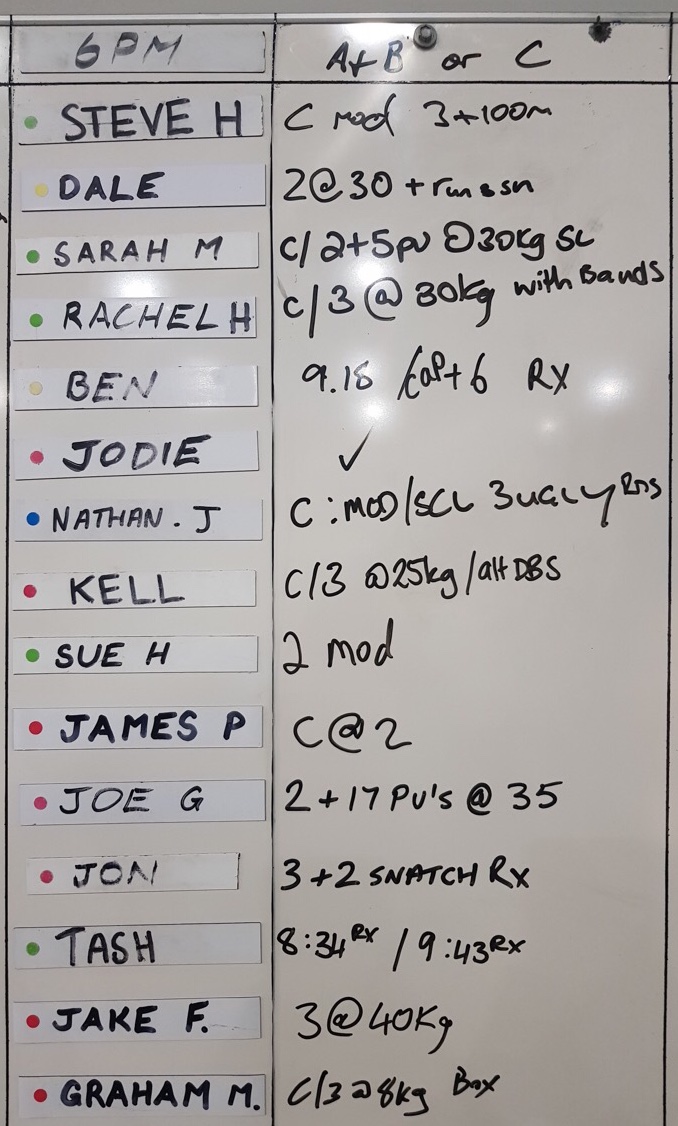 6PM A+B or C
STEVE H C mod 3+100m
DALE 2@30 + run & sn
SARAH M C/ 2+5pu @30kg SC
RACHEL H C/3 @ 30kg with Bands
BEN 9.18 /CAP+6 RX
JODIE ✓
NATHAN. J C:MOD/SCL 3 UGLY RDS
KELL C/3 @25kg/alt DBS
SUE H 2 mod
JAMES P C@2
JOE G 2+17 PU's @ 35
JON 3+2 SNATCH RX
TASH 8:34 RX / 9:43 RX
JAKE F. 3@40Kg
GRAHAM M. C/3 @8kg Box